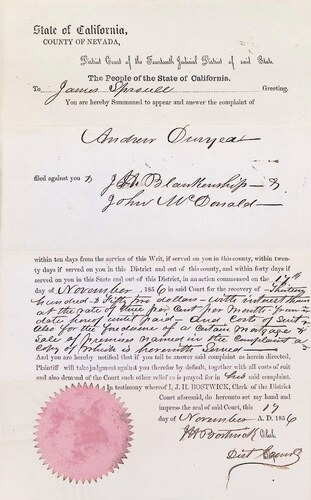 State of California,
COUNTY OF NEVADA,
District Court of the Fourteenth Judicial District of said State.
The People of the State of California.
To James Sproull Greeting.
You are hereby Summoned to appear and answer the complaint of
Andrew Duryea
filed against you & J. H. Blankenship &
John McDonald
within ten days from the service of this Writ, if served on you in this county, within twenty
days if served on you in this District and out of this county, and within forty days if
served on you in this State and out of this District, in an action commenced on the 17th
day of November, 1856 in said Court for the recovery of Thirteen
hundred & Fifty two dollars with interest thereon
at the rate of three per Cent per Month from
date hereof until paid and Cost of Suit
Also for the foreclosure of a Certain Mortgage &
Sale of premises named in the Complaint a
Copy of which is herewith Served
And you are hereby notified that if you fail to answer said complaint as herein directed,
Plaintiff will take judgment against you therefor by default, together with all costs of suit
and also demand of the Court such other relief as is prayed for in his said complaint.
In testimony whereof I, J. H. BOSTWICK, Clerk of the District
Court aforesaid, do hereunto set my hand and
impress the seal of said Court, this 17
day of November A. D. 1856
J H Bostwick Clerk.
Dist Court